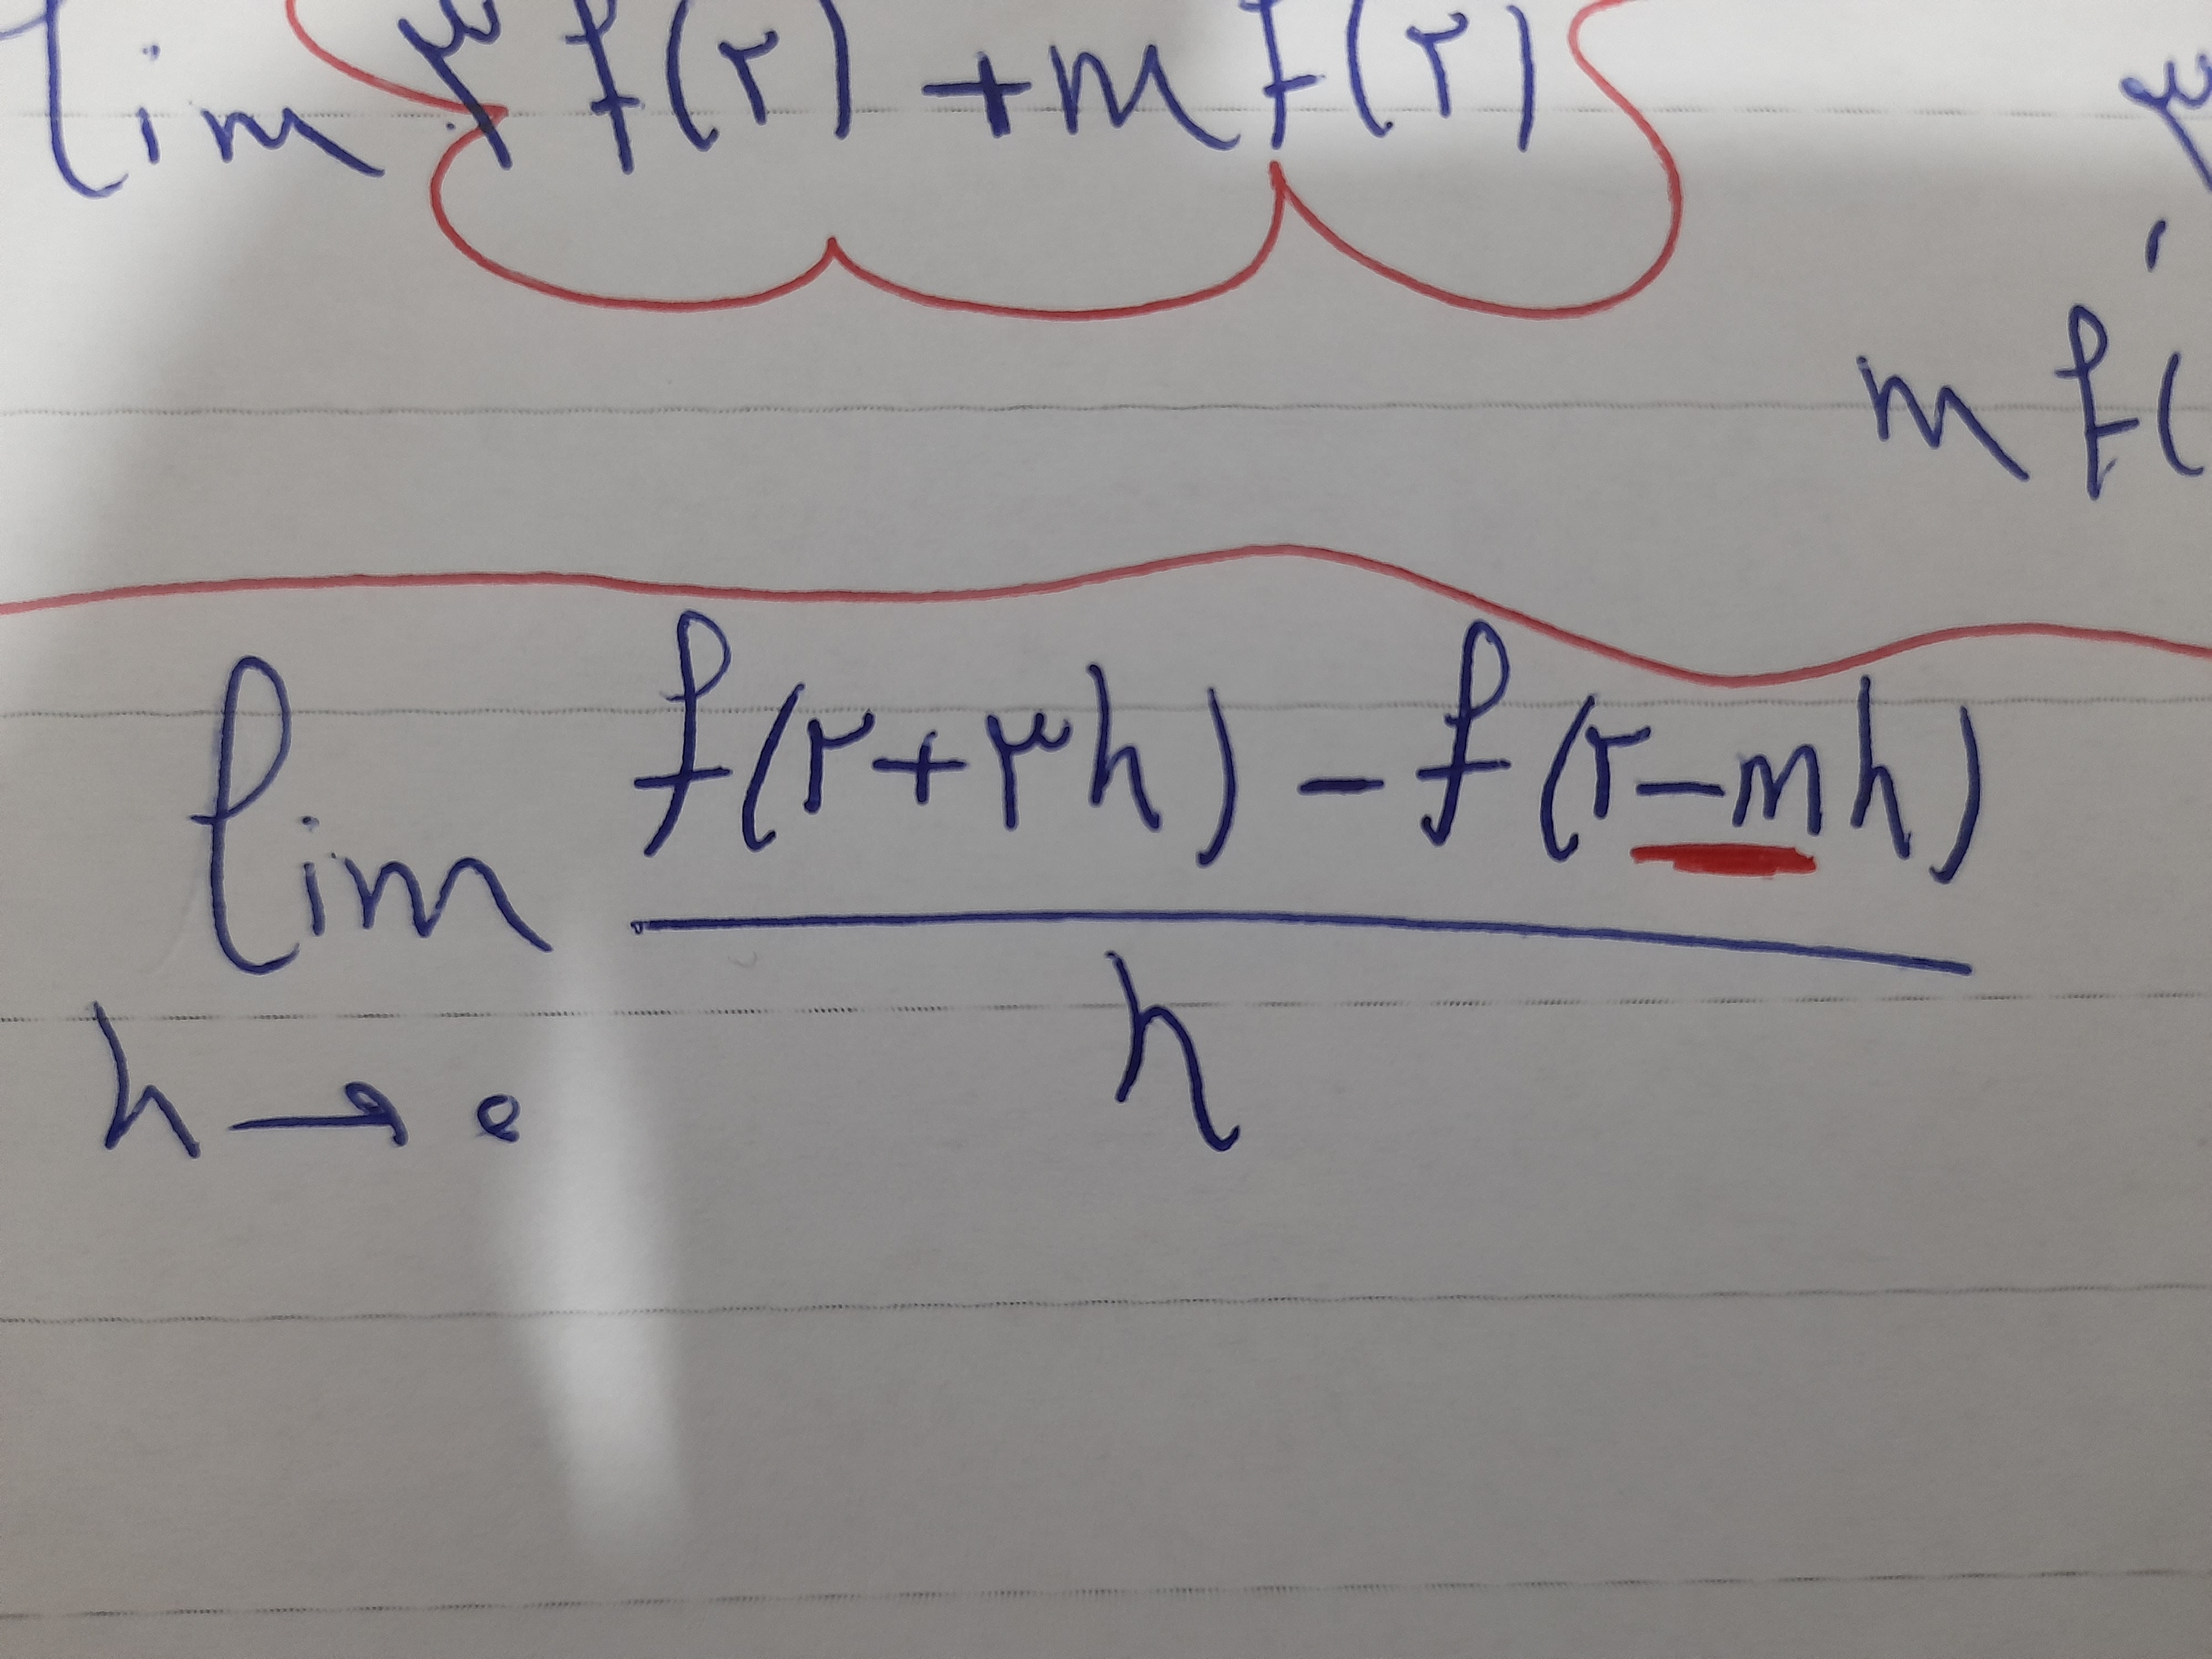 lim ۳f(۲) + mf(۲)
m f(
lim f(۲+۳h) - f(۲-mh)
h
h → ۰